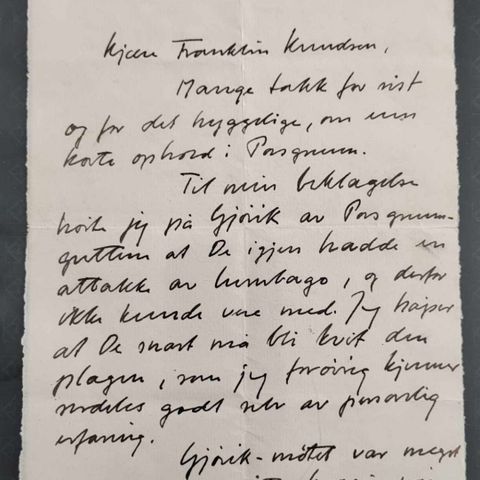 Kjære Franklin Knudsen,
Mange takk for sist
og for det hyggelige, om enn
korte ophold i Porsgrunn.
Til min beklagelse
hørte jeg på Gjøvik av Porsgrunn-
guttene at De igjen hadde en
attakke av lumbago, og derfor
ikke kunde være med. Jeg håper
at De snart må bli kvit den
plagen, som jeg forøvrig kjenner
særdeles godt selv av personlig
erfaring.
Gjøvik-møtet var meget